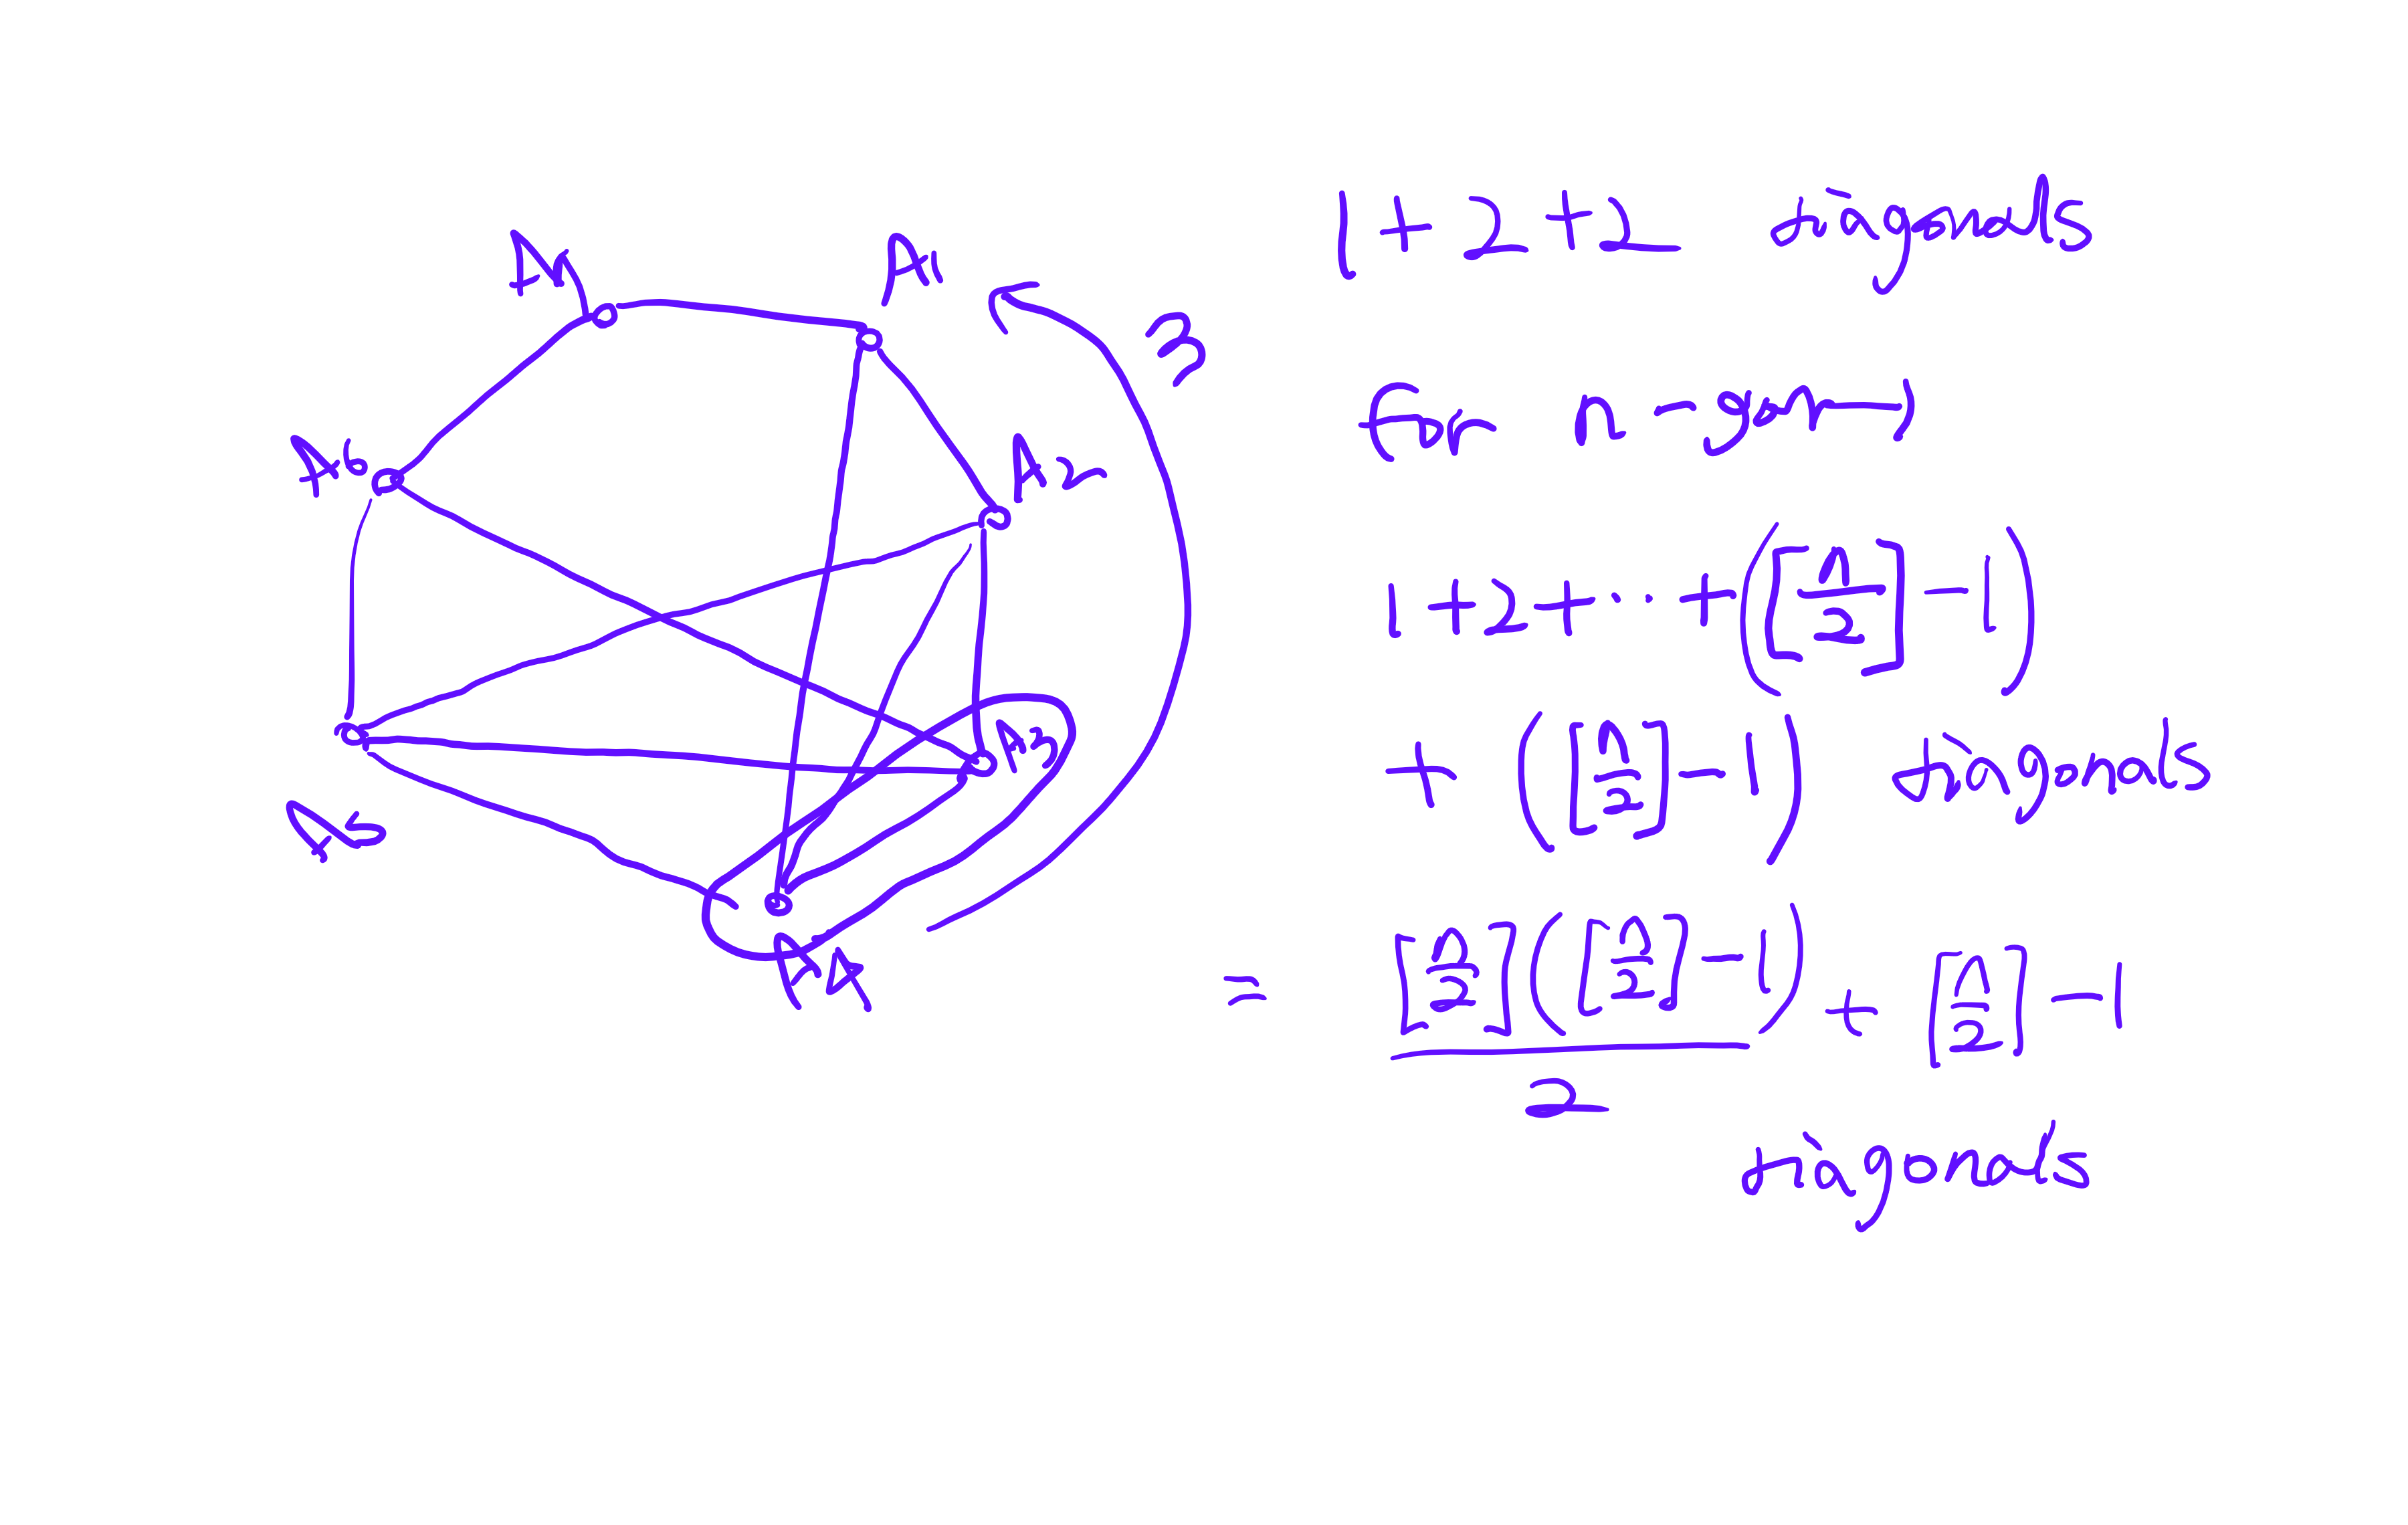 An
A1
A2
A6
A3
A5
A4
3
1+2+2 diagonals
for n-gon,
1+2+...+([n/2]-1)
+([n/2]-1) diagonals
= [n/2]([n/2]-1)/2 + [n/2]-1
diagonals